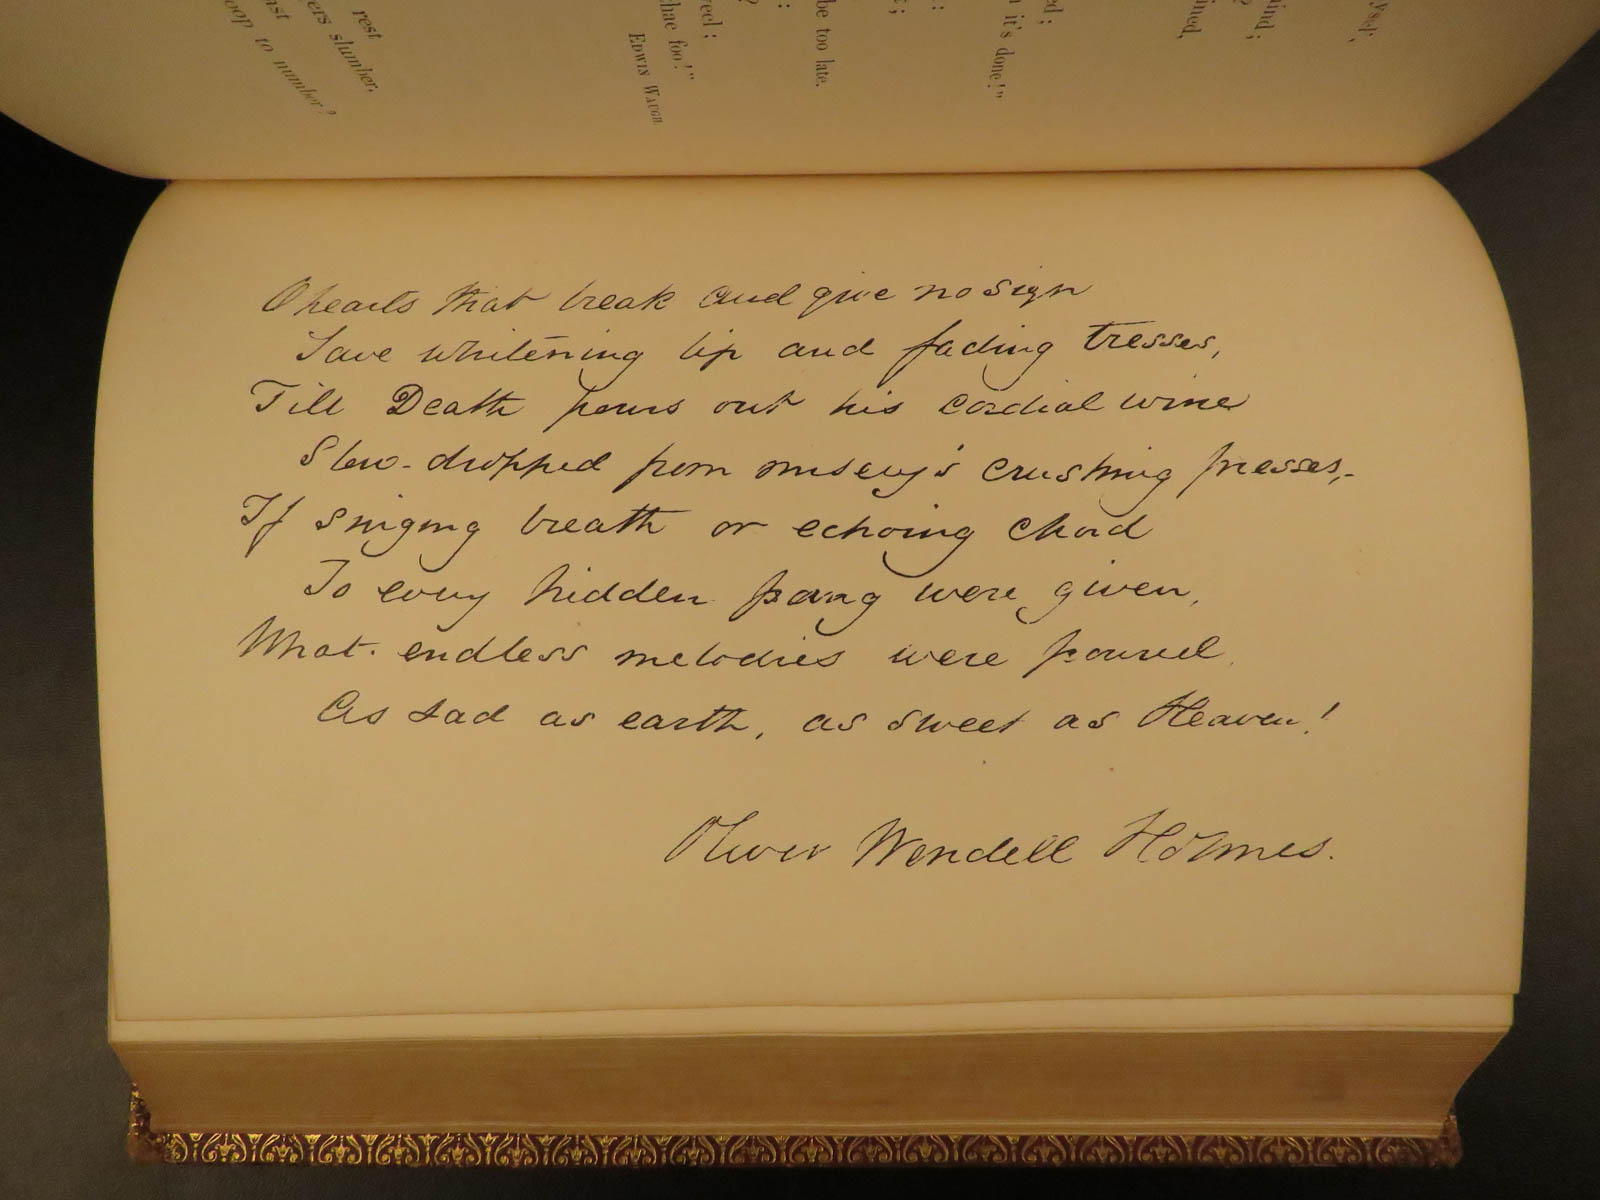 rest
ers slumber,
oop to number?
reel;
hae foo!"
EDWIN WAUGH.
be too late.
it's done!"
ined,
O hearts that break and give no sign
Save whitening lip and fading tresses,
Till Death pours out his cordial wine
Slow-dropped from misery's crushing presses,-
If singing breath or echoing chord
To every hidden pang were given,
What endless melodies were poured,
As sad as earth, as sweet as Heaven!
Oliver Wendell Holmes.